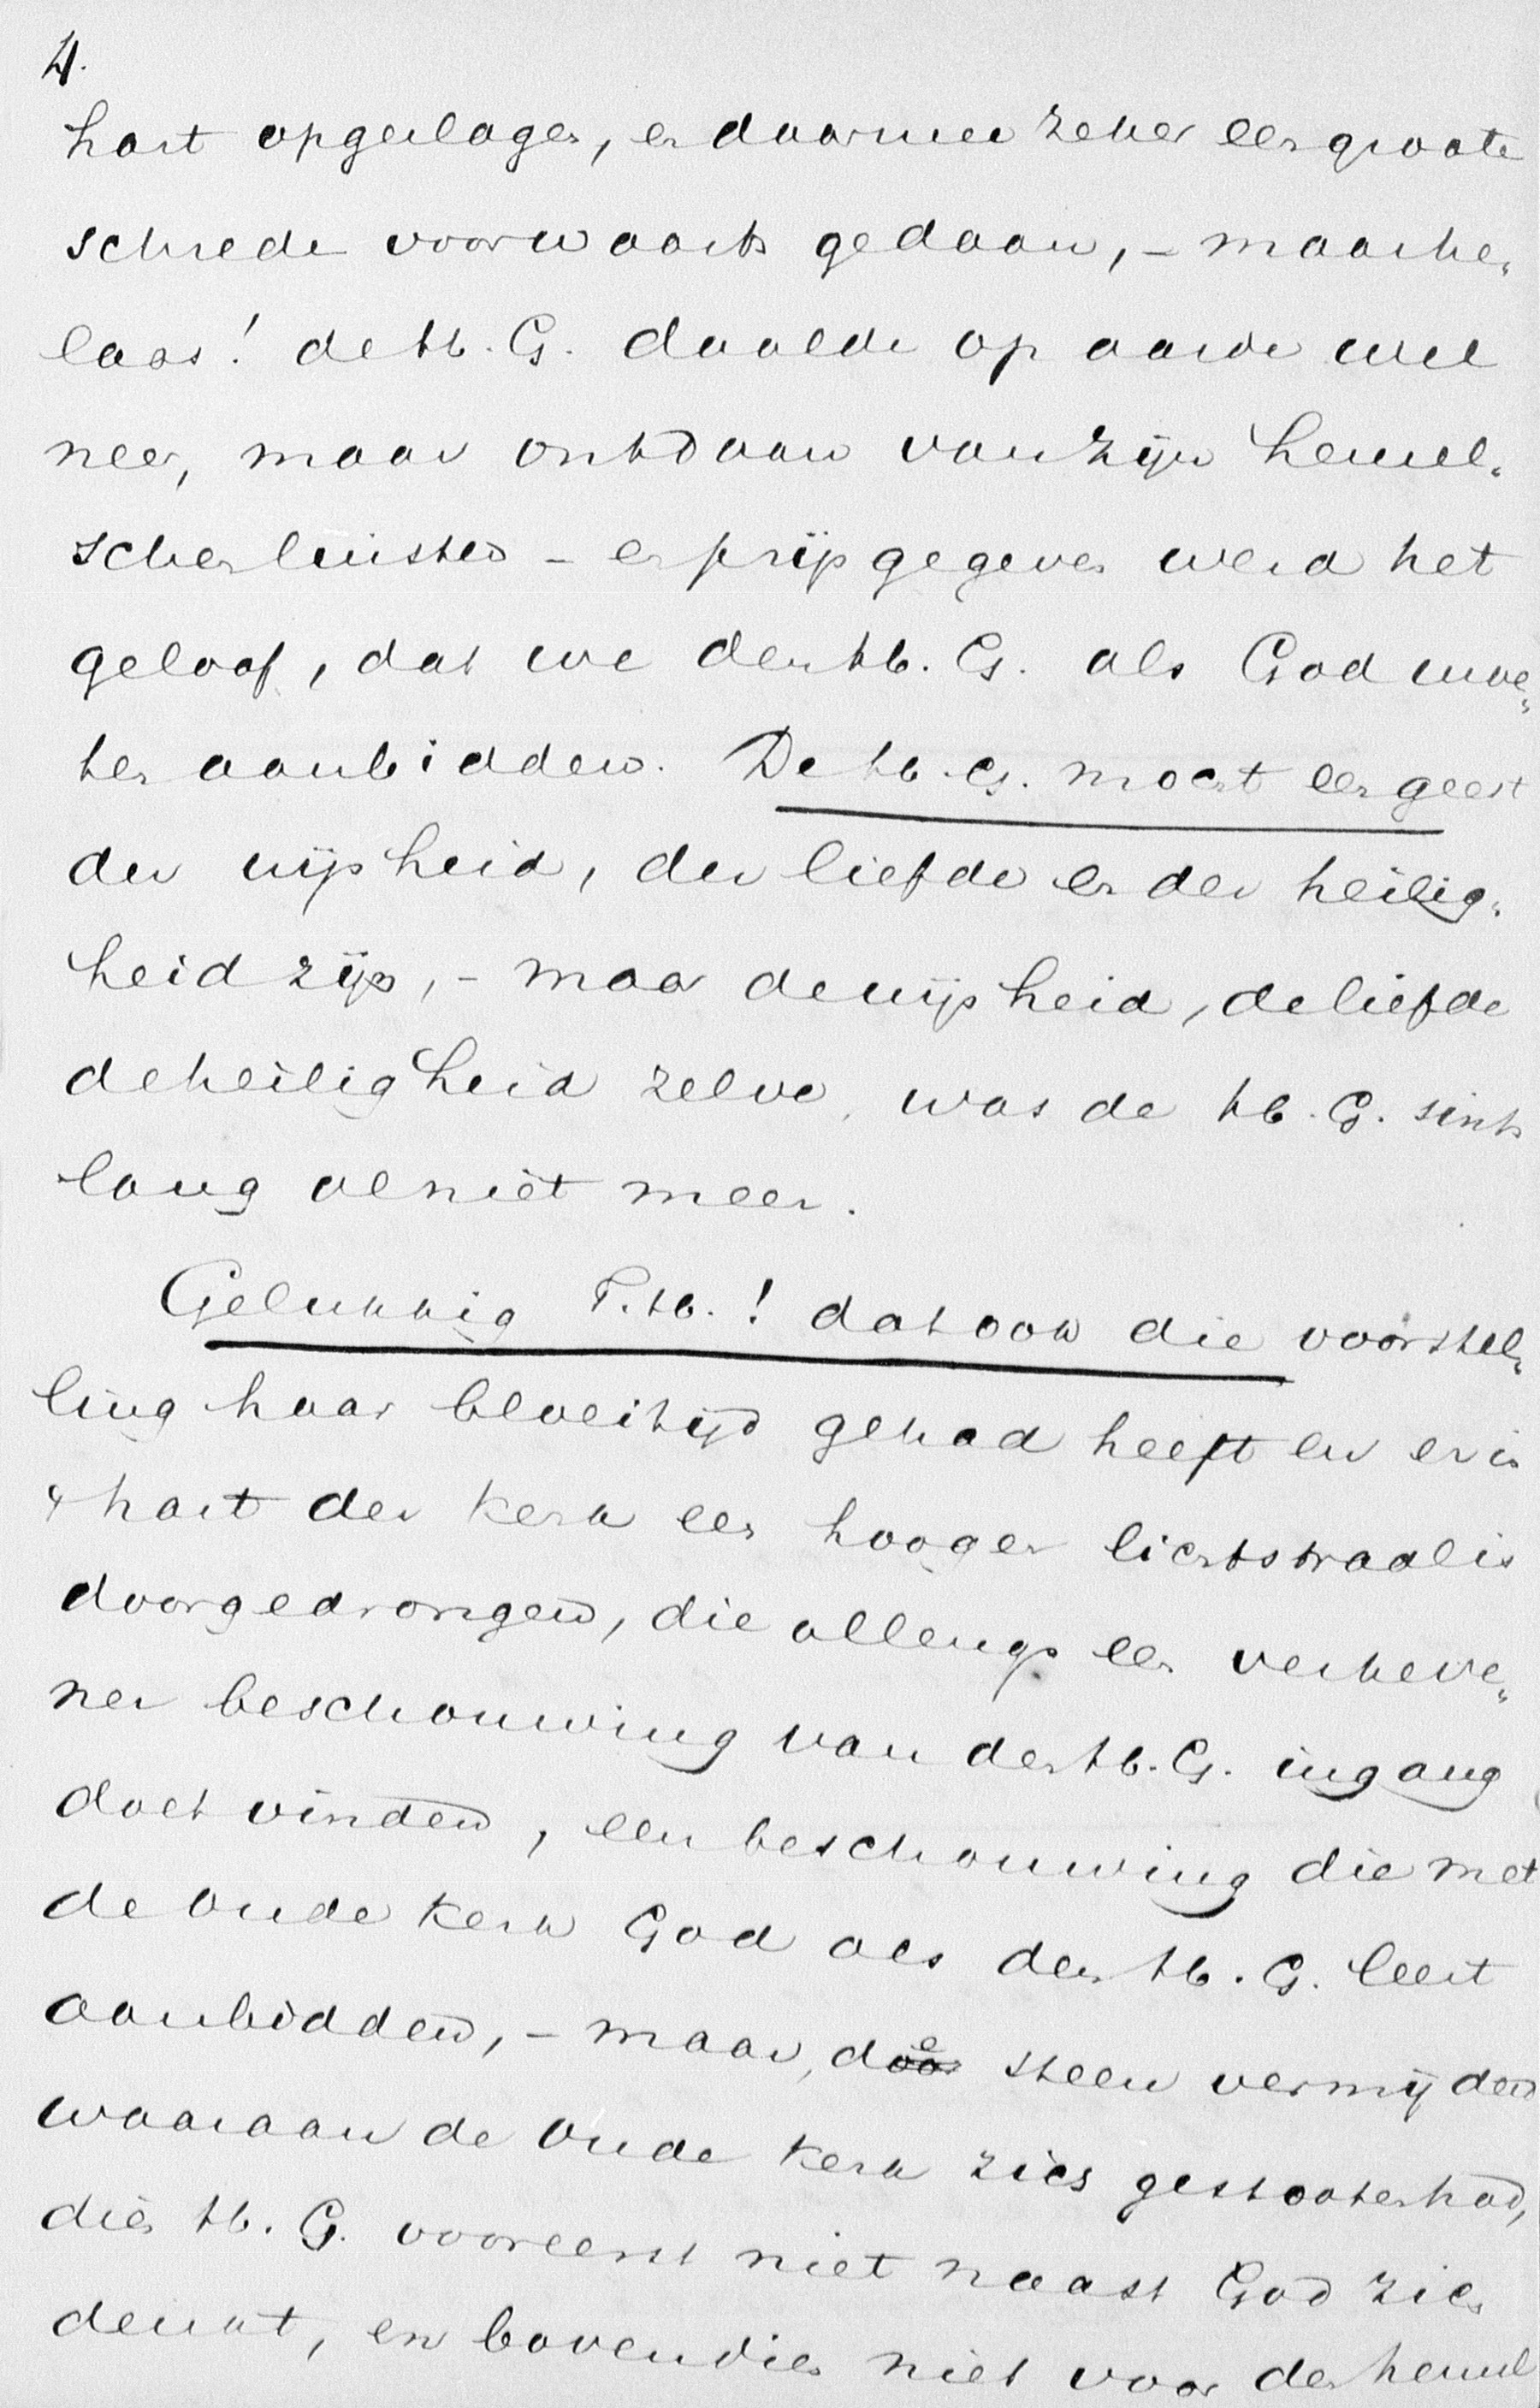 4.
hart opgeslagen, en daarmee zeker een groote
schrede voorwaarts gedaan, – maar he„
laas! de H. G. daalde op aarde wel
neer, maar ontdaan van zijn hemel„
schen luister – en prijs gegeven werd het
geloof, dat we den H. G. als God moe„
ten aanbidden. De H. G. mocht een geest
der wijsheid, der liefde en der heilig„
heid zijn, – maar de wijsheid, de liefde
de heiligheid zelve, was de H. G. sints
lang al niet meer.
Gelukkig T. H.! dat ook die voorstel„
ling haar bloeitijd gehad heeft en er in
't hart der kerk een hooger lichtstraal is
doorgedrongen, die allengs een verheve„
ner beschouwing van den H. G. ingang
doet vinden, een beschouwing die met
de oude kerk God als den H. G. leert
aanbidden, – maar, de steen vermijdend
waaraan de oude kerk zich gestooten had,
dien H. G. vooreerst niet naast God zich
denkt, en bovendien niet voor den hemel